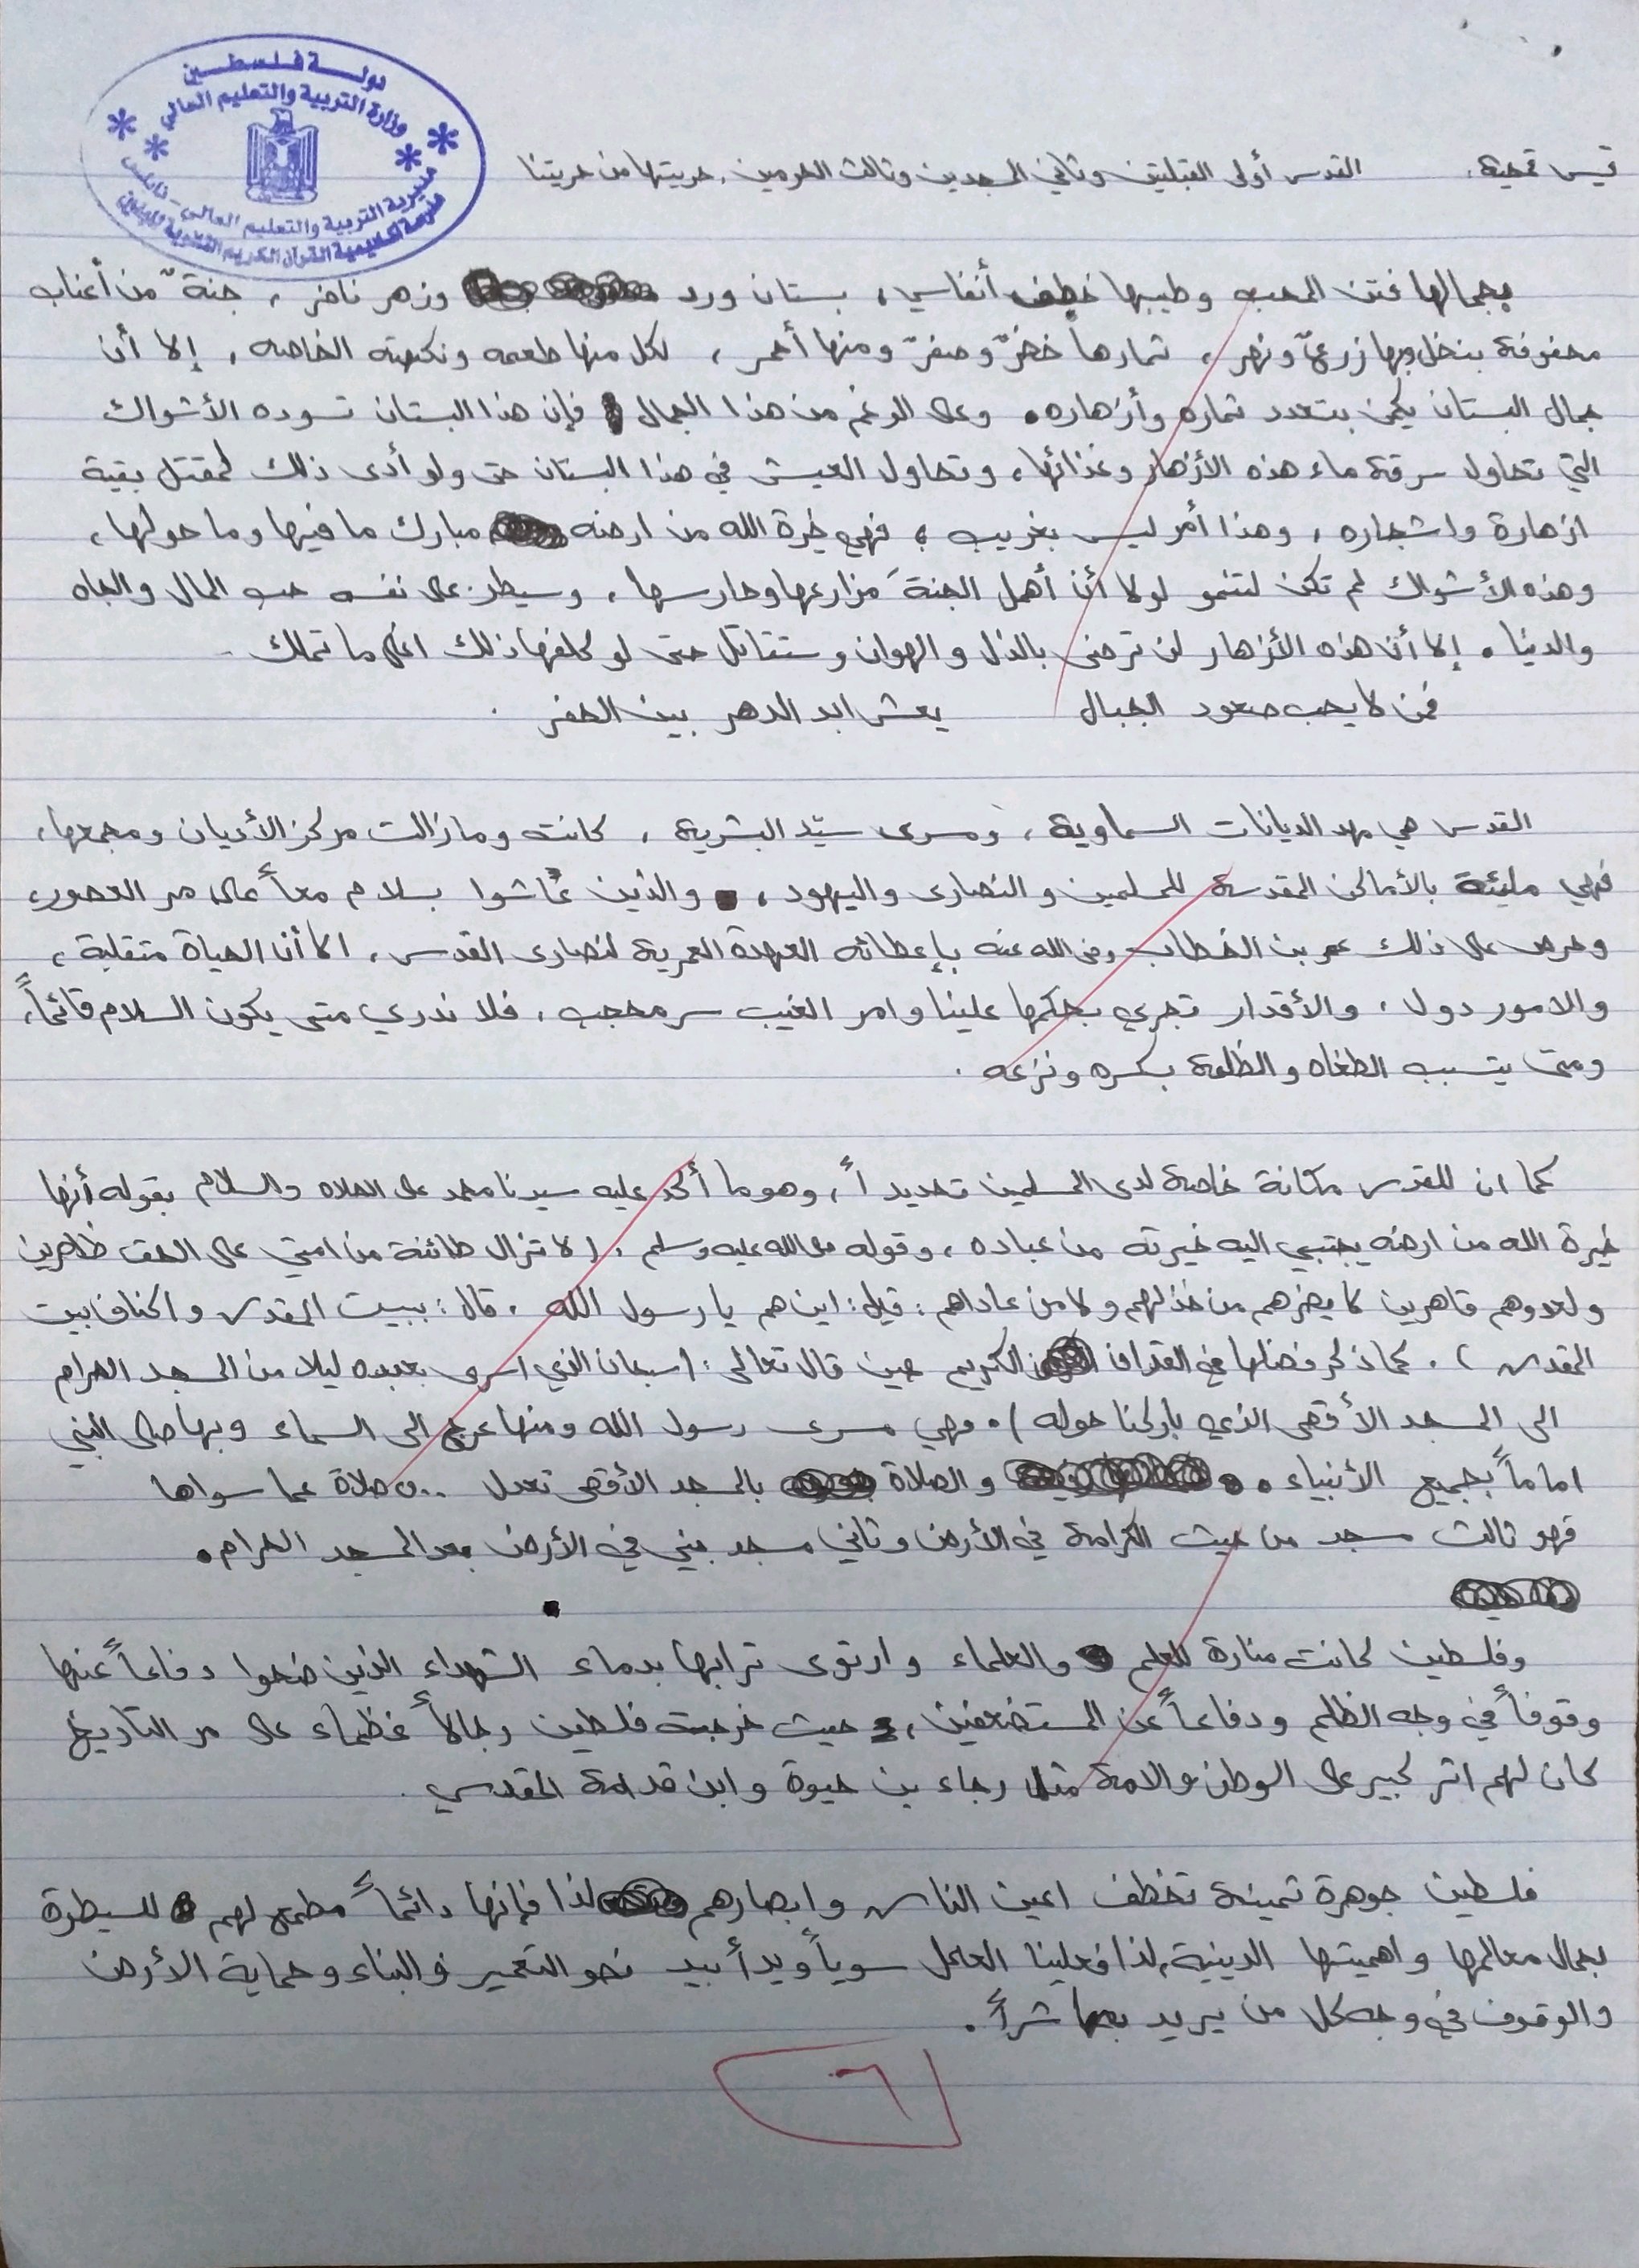 دولة فلسطين
وزارة التربية والتعليم العالي
مديرية التربية والتعليم العالي - نابلس
القرآن الكريم الثانوية للبنين
القدس أولى القبلتين وثاني المسجدين وثالث الحرمين، حريتها من حريتنا
بجمالها فتن المحب وطيبها خطف أنفاسي، بستان ورد وزهر ناضر، جنةٌ من أعناب
محفوفة بنخل وبها زرعٌ ونهر، ثمارها خضرٌ وصفرٌ ومنها أحمر، لكل منها طعمه ونكهته الخاصه، إلا أن
جمال البستان يكمن بتعدد ثماره وأزهاره. وعلى الرغم من هذا الجمال فإن هذا البستان تسوده الأشواك
التي تحاول سرقة ماء هذه الأزهار وغذائها، وتحاول العيش في هذا البستان حتى ولو أدى ذلك لمقتل بقية
ازهارة واشجاره، وهذا أمر ليس بغريب، فهي خيرة الله من ارضه مبارك ما فيها وما حولها،
وهذه الأشواك لم تكن لتنمو لولا أن أهمل الجنةَ مزارعها وحارسها، وسيطر على نفسه حب المال والجاه
والدنيا. إلا أن هذه الأزهار لن ترضى بالذل والهوان وستقاتل حتى لو كلفها ذلك اغلى ما تملك.
فمن لا يحب صعود الجبال يعش ابد الدهر بين الحفر.
القدس هي مهد الديانات السماوية، ومسرى سيّد البشرية، كانت وما زالت مركز الأديان ومجمعها،
فهي مليئة بالأماكن المقدسة للمسلمين والنصارى واليهود، والذين عاشوا بسلام معاً على مر العصور،
وحرص على ذلك عمر بن الخطاب رضي الله عنه بإعطائه العهدة العمرية لنصارى القدس، الا أن الحياة متقلبة،
والامور دول، والأقدار تجري بحكمها علينا وامر الغيب سر محجب، فلا ندري متى يكون السلام قائماً،
ومتى يتسبب الطغاه والظلمة بكسره ونزعه.
كما ان للقدس مكانة خاصة لدى المسلمين تحديداً، وهو ما أكد عليه سيدنا محمد على الصلاه والسلام بقوله أنها
خيرة الله من ارضه يجتبي اليه خيرته من عباده، وقوله صلى الله عليه وسلم: (لا تزال طائفة من امتي على الحق ظاهرين
ولعدوهم قاهرين لا يضرهم من خذلهم ولا من عاداهم: قيل: اين هم يا رسول الله، قال: ببيت المقدس واكناف بيت
المقدس). كما ذكر فضلها في القران الكريم حين قال تعالى: (سبحان الذي اسرى بعبده ليلا من المسجد الحرام
الى المسجد الأقصى الذي باركنا حوله). فهي مسرى رسول الله ومنها عرج الى السماء وبها صلى النبي
اماماً بجميع الأنبياء. والصلاة بالمسجد الأقصى تعدل ٥٠٠ صلاة عما سواها
فهو ثالث مسجد من حيث الكرامة في الأرض وثاني مسجد بني في الأرض بعد المسجد الحرام.
وفلسطين كانت منارة للعلم والعلماء وارتوى ترابها بدماء الشهداء الذين ضحوا دفاعاً عنها
وقوفاً في وجه الظلم ودفاعاً عن المستضعفين، حيث خرجت فلسطين رجالاً عظماء على مر التاريخ
كان لهم اثر كبير على الوطن والامة مثل رجاء بن حيوة وابن قدامة المقدسي.
فلسطين جوهرة ثمينة تخطف اعين الناس وابصارهم لذا فإنها دائماً مطمع لهم للسيطرة
بجمال معالمها واهميتها الدينية، لذا فعلينا العمل سوياً ويداً بيد نحو التعمير والبناء وحماية الأرض
والوقوف في وجه كل من يريد بها شراً.
٦